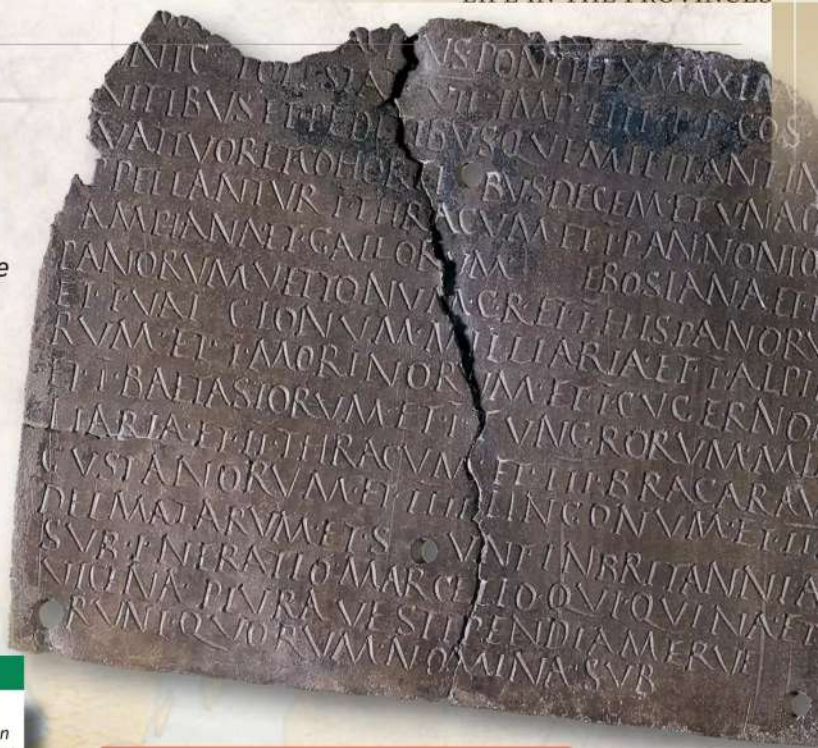 LIFE IN THE PROVINCES
e
NIC
NVS PONTIFEX MAXIM
NITIBVS ET PEDITIBVS QVI MILITANT IN
VATTVOR ET COHORTIBVS DECEM ET VNA Q
PELLANTVR I THRACVM ET I PANNONIO
AMPIAN NET GALLORVM EBOSIANA ET I
PANORVM VETTONVM C R ET I HISPANORV
ET I VAI CIONVM M LLIARIA ET I ALPI
RVM ET I MORINORVM ET I CVGERNO
ET I BAETASIORVM ET I TVNGRORVM MI
LIARIA ET II THRACVM ET III BRACARAV
GVSTANORVM ET IIII LINGONVM ET II
DELMATARVM ET S VNT IN BRITANNIA
SVB P NERATIO MARCELLO QVI QVINA ET
VICENA PLVRA VE STIPENDIA MERVE
RVNT QVORVM NOMINA SVB
n